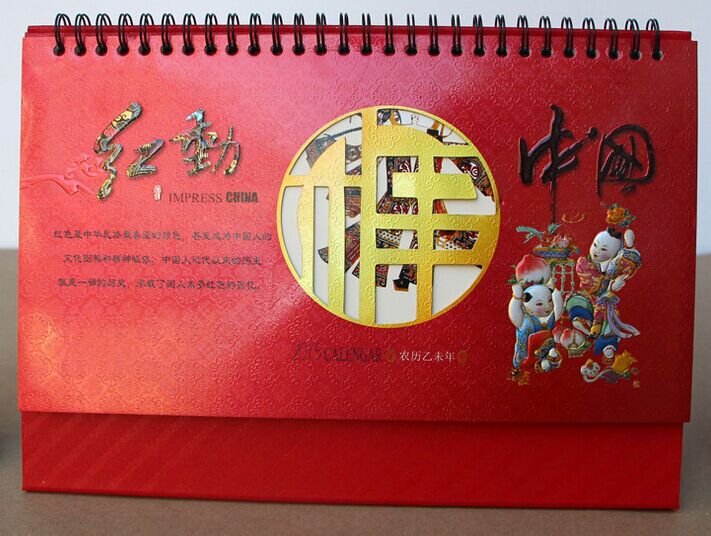 红動
中國
IMPRESS CHINA
祥
红色是中华民族最喜爱的颜色，甚至成为中国人的
文化图腾和精神皈依。中国人近代以来的历史
就是一部红的历史，承载了国人太多红色的记忆。
2015 CALENGAR 农历乙未年